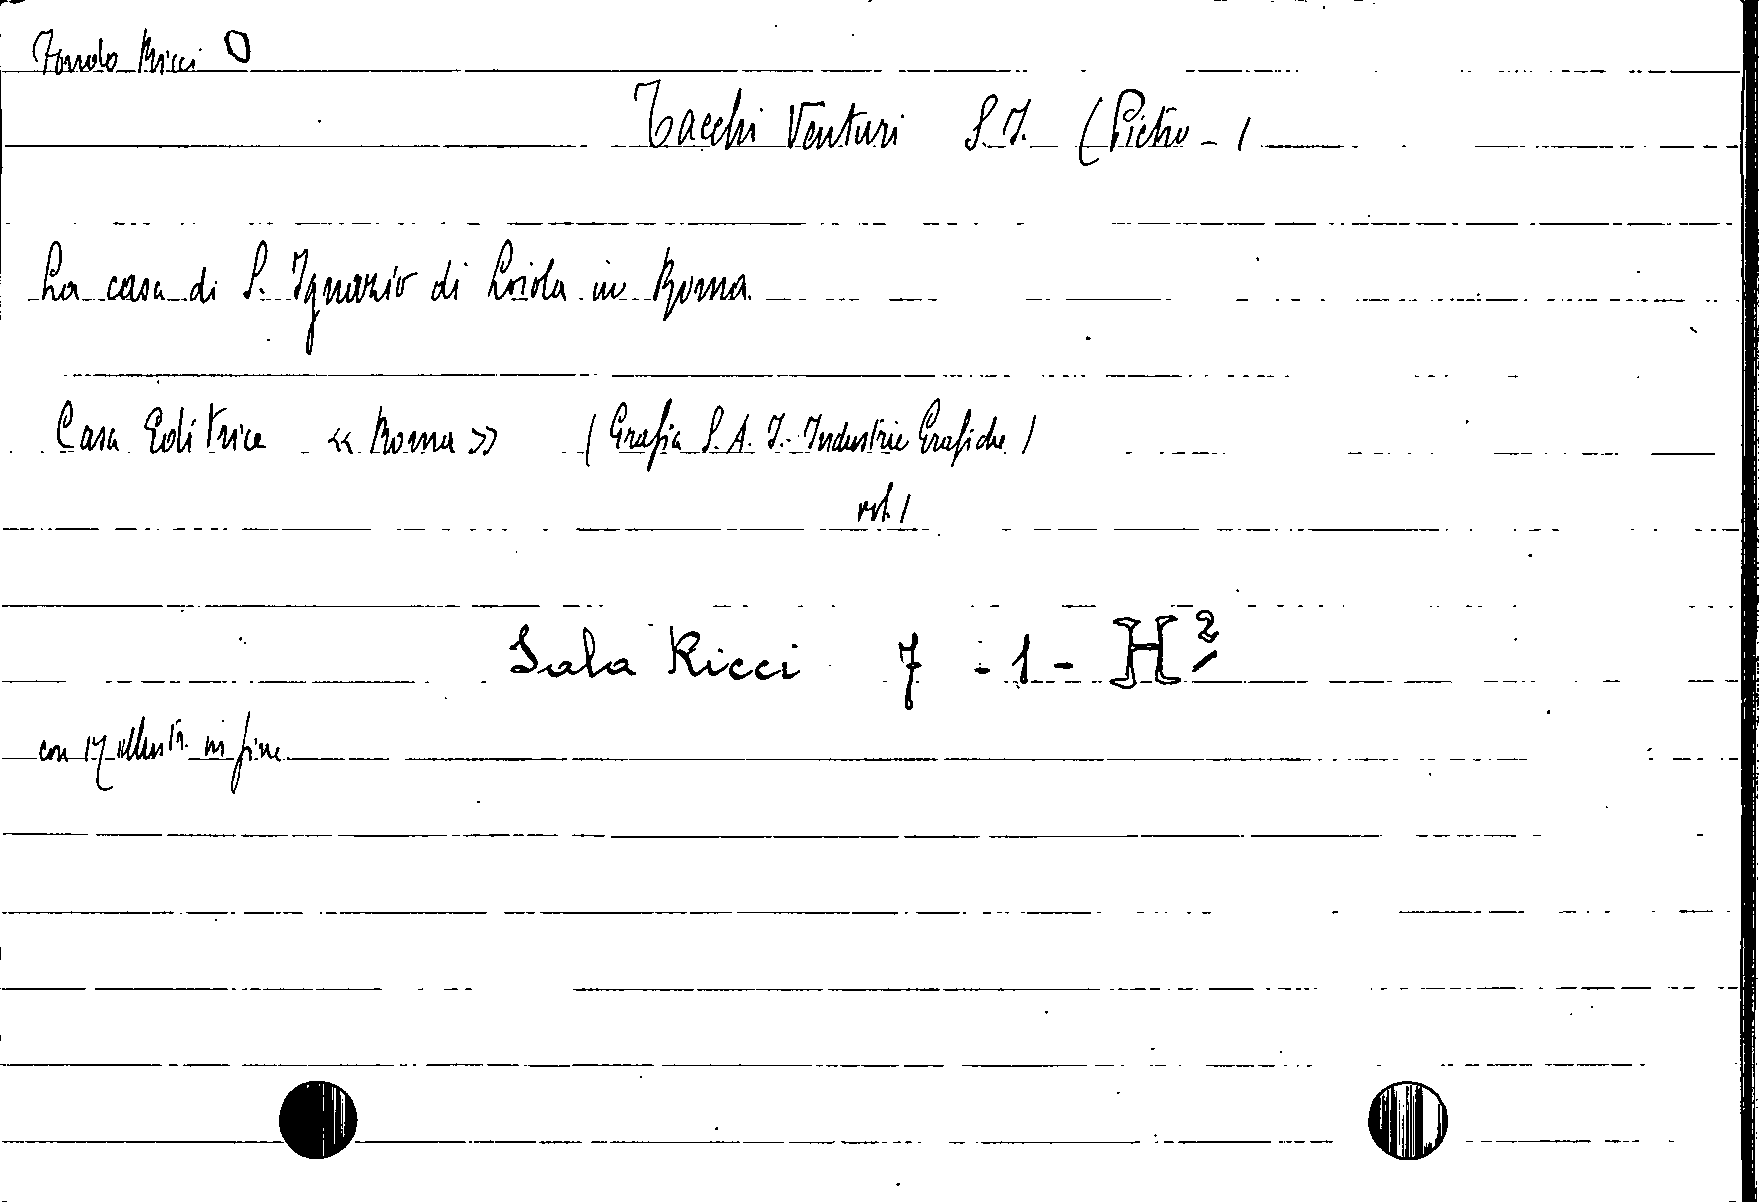 Fondo Ricci O
Tacchi Venturi S.J. (Pietro - )
La casa di S. Ignazio di Loiola in Roma
Casa Editrice « Roma » ( Grafia S. A. I. Industrie Grafiche )
vol. 1
Sala Ricci 7 - 1 - H²
con 17 illustr. in fine